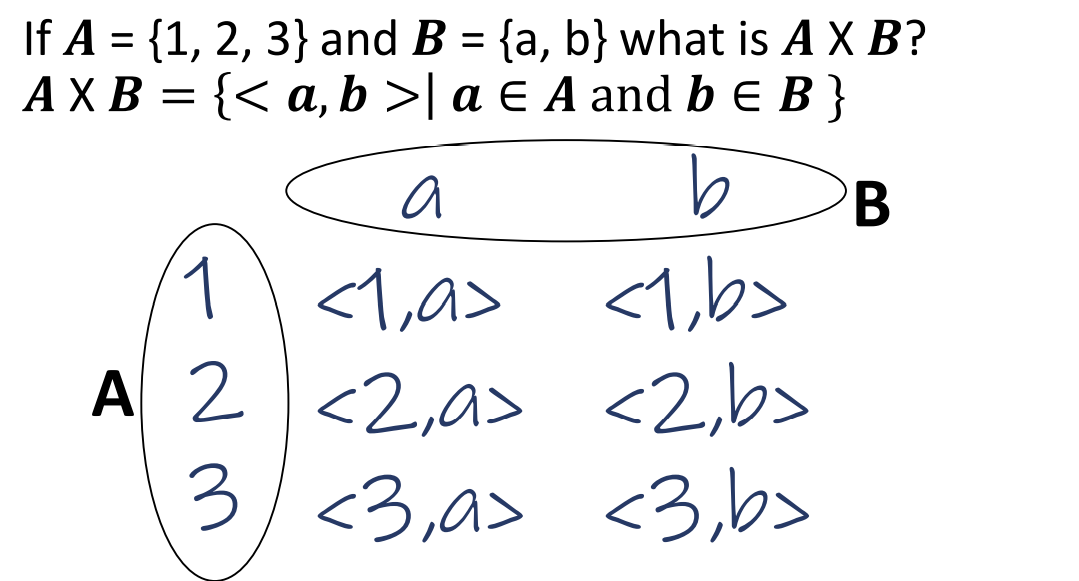 If A = {1, 2, 3} and B = {a, b} what is A X B?
A X B = {< a, b >| a ∈ A and b ∈ B }
a b B
1 <1,a> <1,b>
A 2 <2,a> <2,b>
3 <3,a> <3,b>